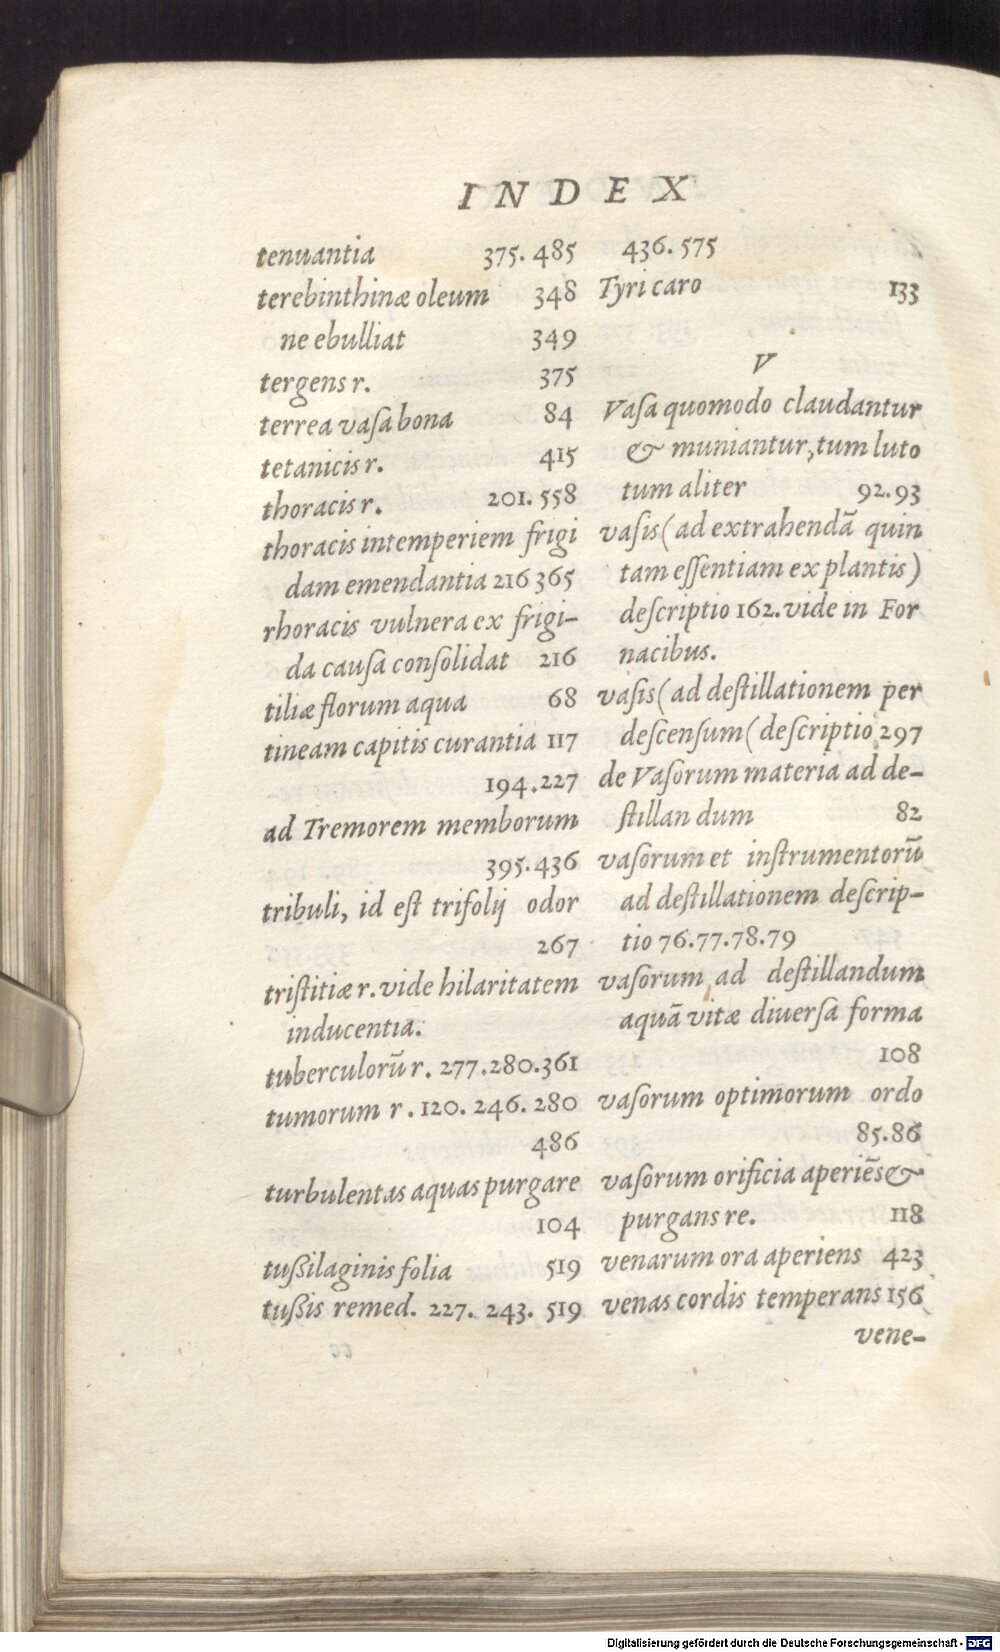 INDEX
tenuantia 375. 485
terebinthinæ oleum 348
ne ebulliat 349
tergens r. 375
terrea vaſa bona 84
tetanicis r. 415
thoracis r. 201. 558
thoracis intemperiem frigi
dam emendantia 216 365
rhoracis vulnera ex frigi-
da cauſa conſolidat 216
tiliæ florum aqua 68
tineam capitis curantia 117
194.227
ad Tremorem memborum
395.436
tribuli, id eſt trifolij odor
267
triſtitiæ r. vide hilaritatem
inducentia.
tuberculorũ r. 277.280.361
tumorum r. 120. 246. 280
486
turbulentas aquas purgare
104
tußilaginis folia 519
tußis remed. 227. 243. 519
436. 575
Tyri caro 133
V
Vaſa quomodo claudantur
& muniantur, tum luto
tum aliter 92.93
vaſis (ad extrahendã quin
tam eſſentiam ex plantis)
deſcriptio 162. vide in For
nacibus.
vaſis (ad deſtillationem per
deſcenſum (deſcriptio 297
de Vaſorum materia ad de-
ſtillan dum 82
vaſorum et inſtrumentorũ
ad deſtillationem deſcrip-
tio 76.77.78.79
vaſorum ad deſtillandum
aquã vitæ diuerſa forma
108
vaſorum optimorum ordo
85.86
vaſorum orificia aperiẽs &
purgans re. 118
venarum ora aperiens 423
venas cordis temperans 156
vene-
Digitalisierung gefördert durch die Deutsche Forschungsgemeinschaft - DFG